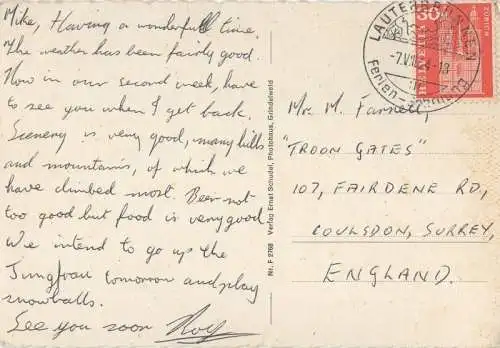 Mike, Having a wonderful time.
The weather has been fairly good.
Now in our second week, have
to see you when I get back.
Scenery is very good, many hills
and mountains, of which we
have climbed most. Beer not
too good but food is very good.
We intend to go up the
Jungfrau tomorrow and play
snowballs.
See you soon Roy
Nr. F 2768 Verlag Ernst Schudel, Photohaus, Grindelwald
LAUTERBRUNNEN
Ferien
30
HELVETIA
Mr. M. Farnell,
"TROON GATES"
107, FAIRDENE RD,
COULSDON, SURREY,
ENGLAND.